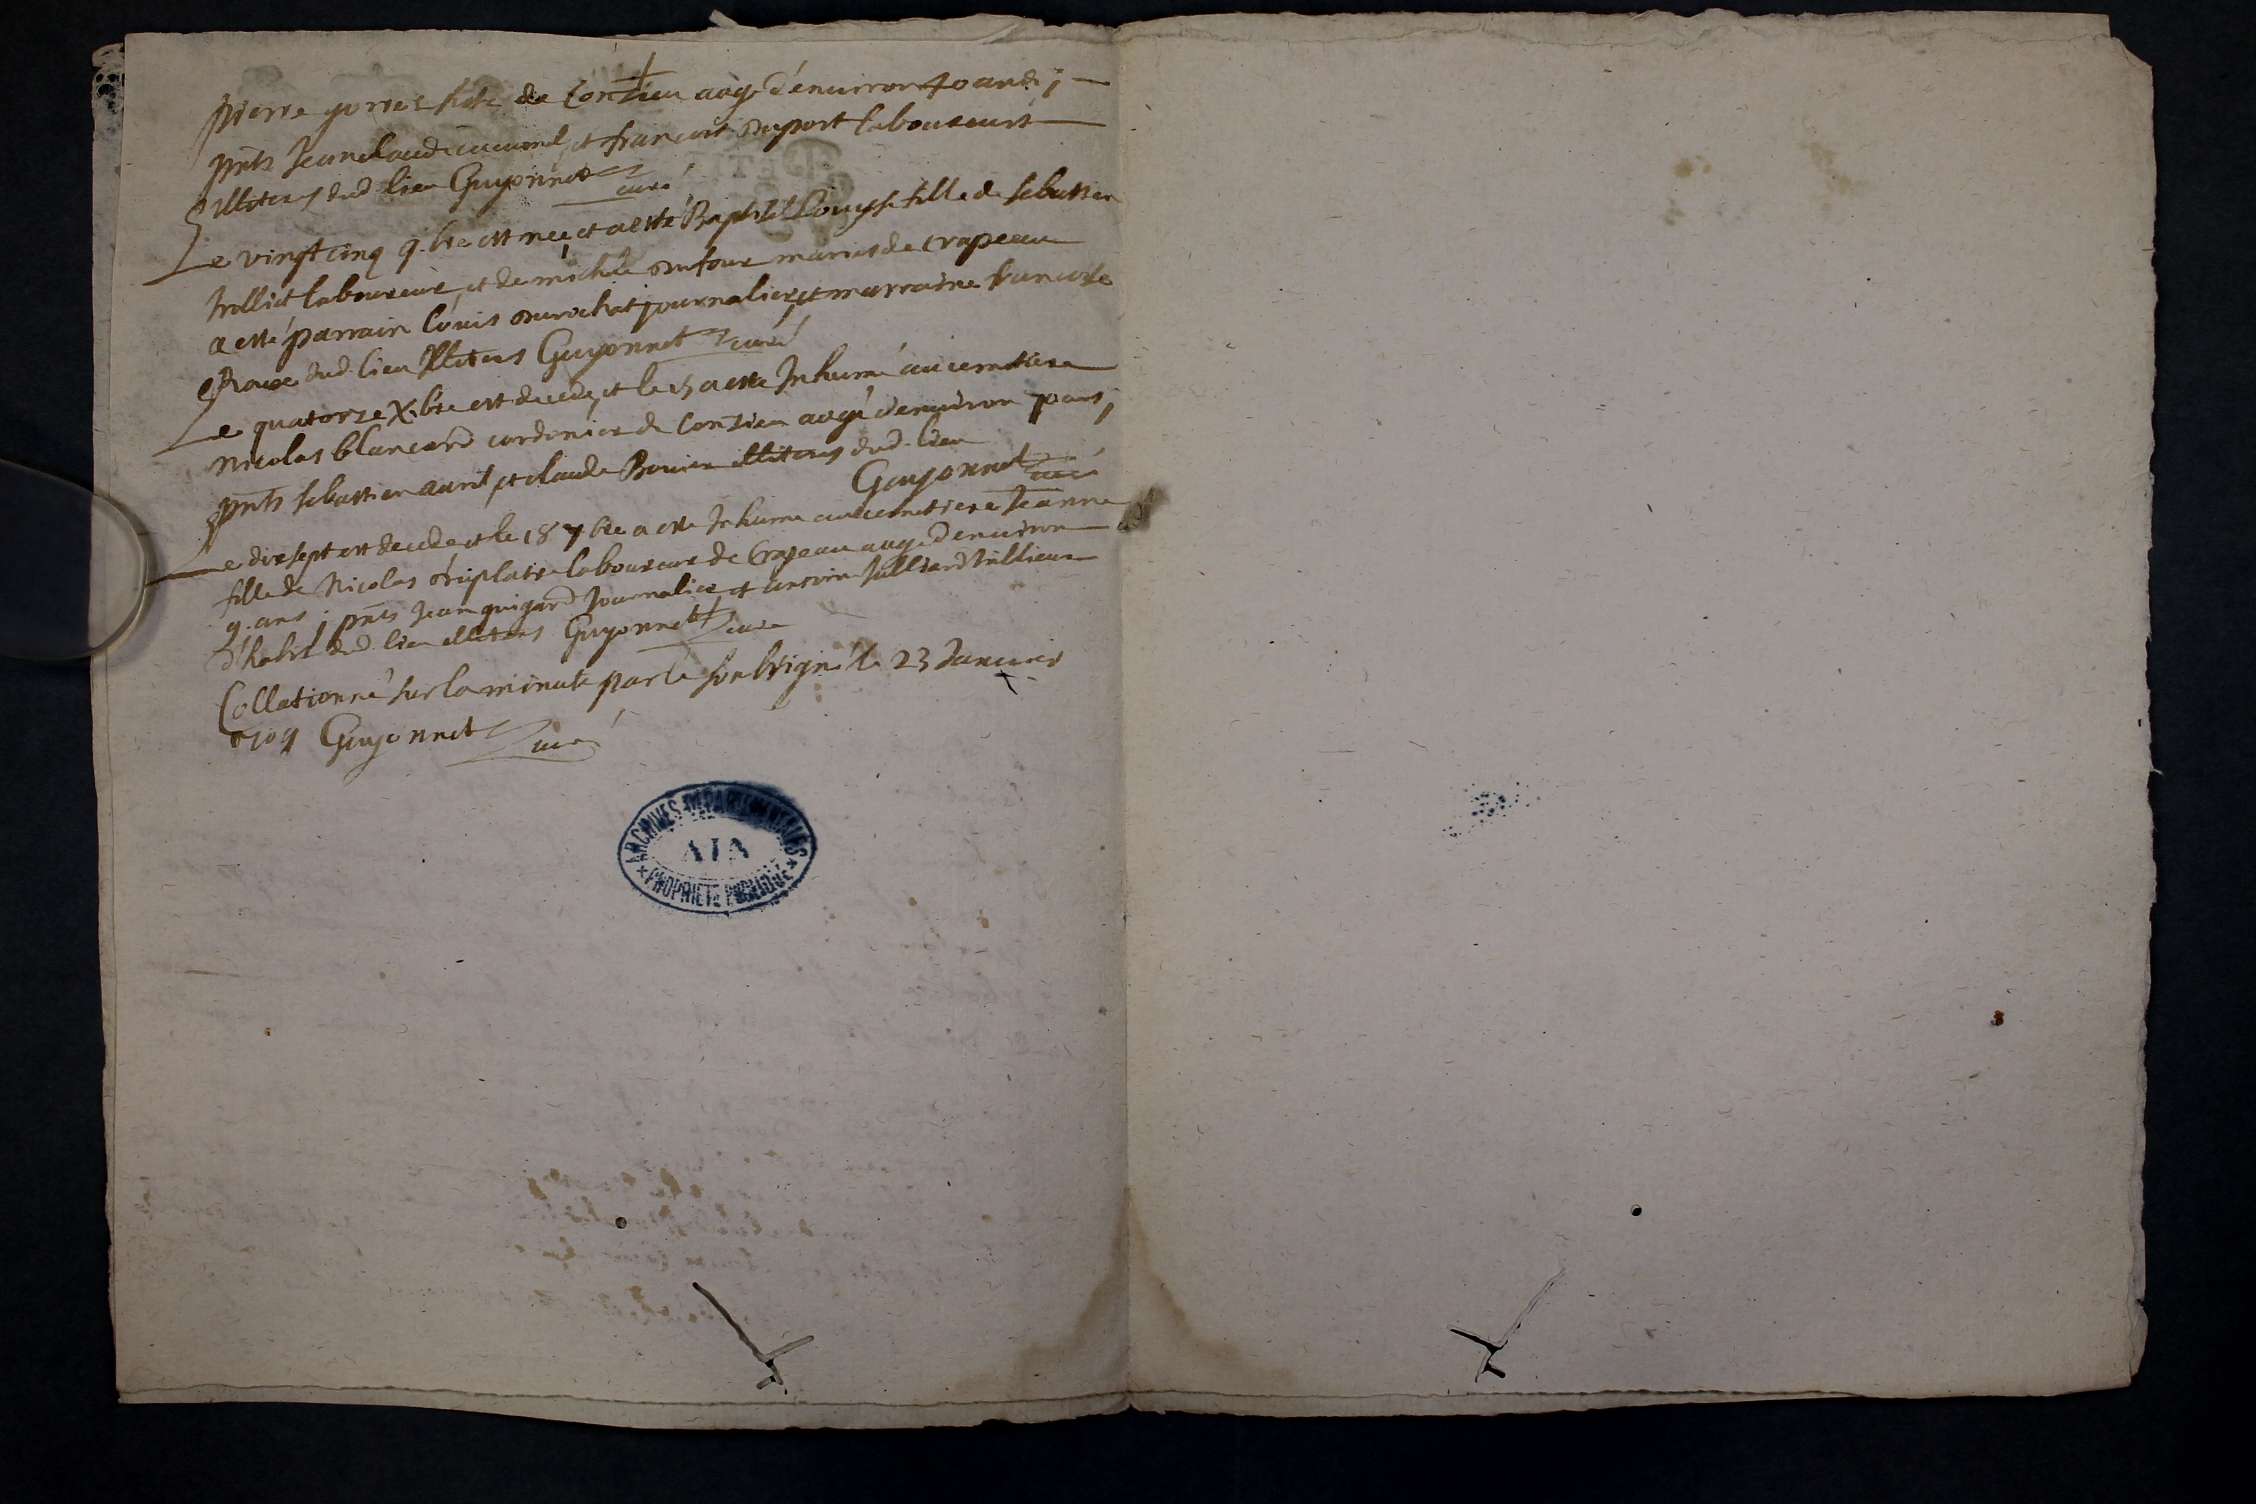 pierre hoste de Conzieu aagé d'environ 40 ans ;
pnts Jean claude et françois duport laboureurs
illiteres dud lieu Guyonnet curé
Le vingt cinq 9.bre est née et a esté Baptisé Louyse fille de sebastien
trolliet laboureur, et de michele dufour mariés de crapeau
a esté parrain Louis durochat journalier, et marraine francoise
Roux dud. lieu Illiteres Guyonnet curé
Le quatorze X.bre est decedé, et le 15 a esté Inhumé au cemetiere
Nicolas blancard cordonier de Conzieu aagé d'environ ans ;
pnts sebastien avril, et claude Bovier illiteres dud. lieu
Guyonnet curé
Le dixsept est decedé et le 18 bre a esté Inhume au cemetiere Jeanne
fille de Nicolas laboureur de Crapeau aagé d'environ
9. ans ; pnts Jean guigard Journalier et antoine Julliard tallieur
d'habit dud. lieu illiteres Guyonnet curé
Collationné sur la minute par le soubsigné le 23 Janvier
1709 Guyonnet curé
ARCHIVES DEPARTEMENTALES
AIN
PROPRIETE PUBLIQUE